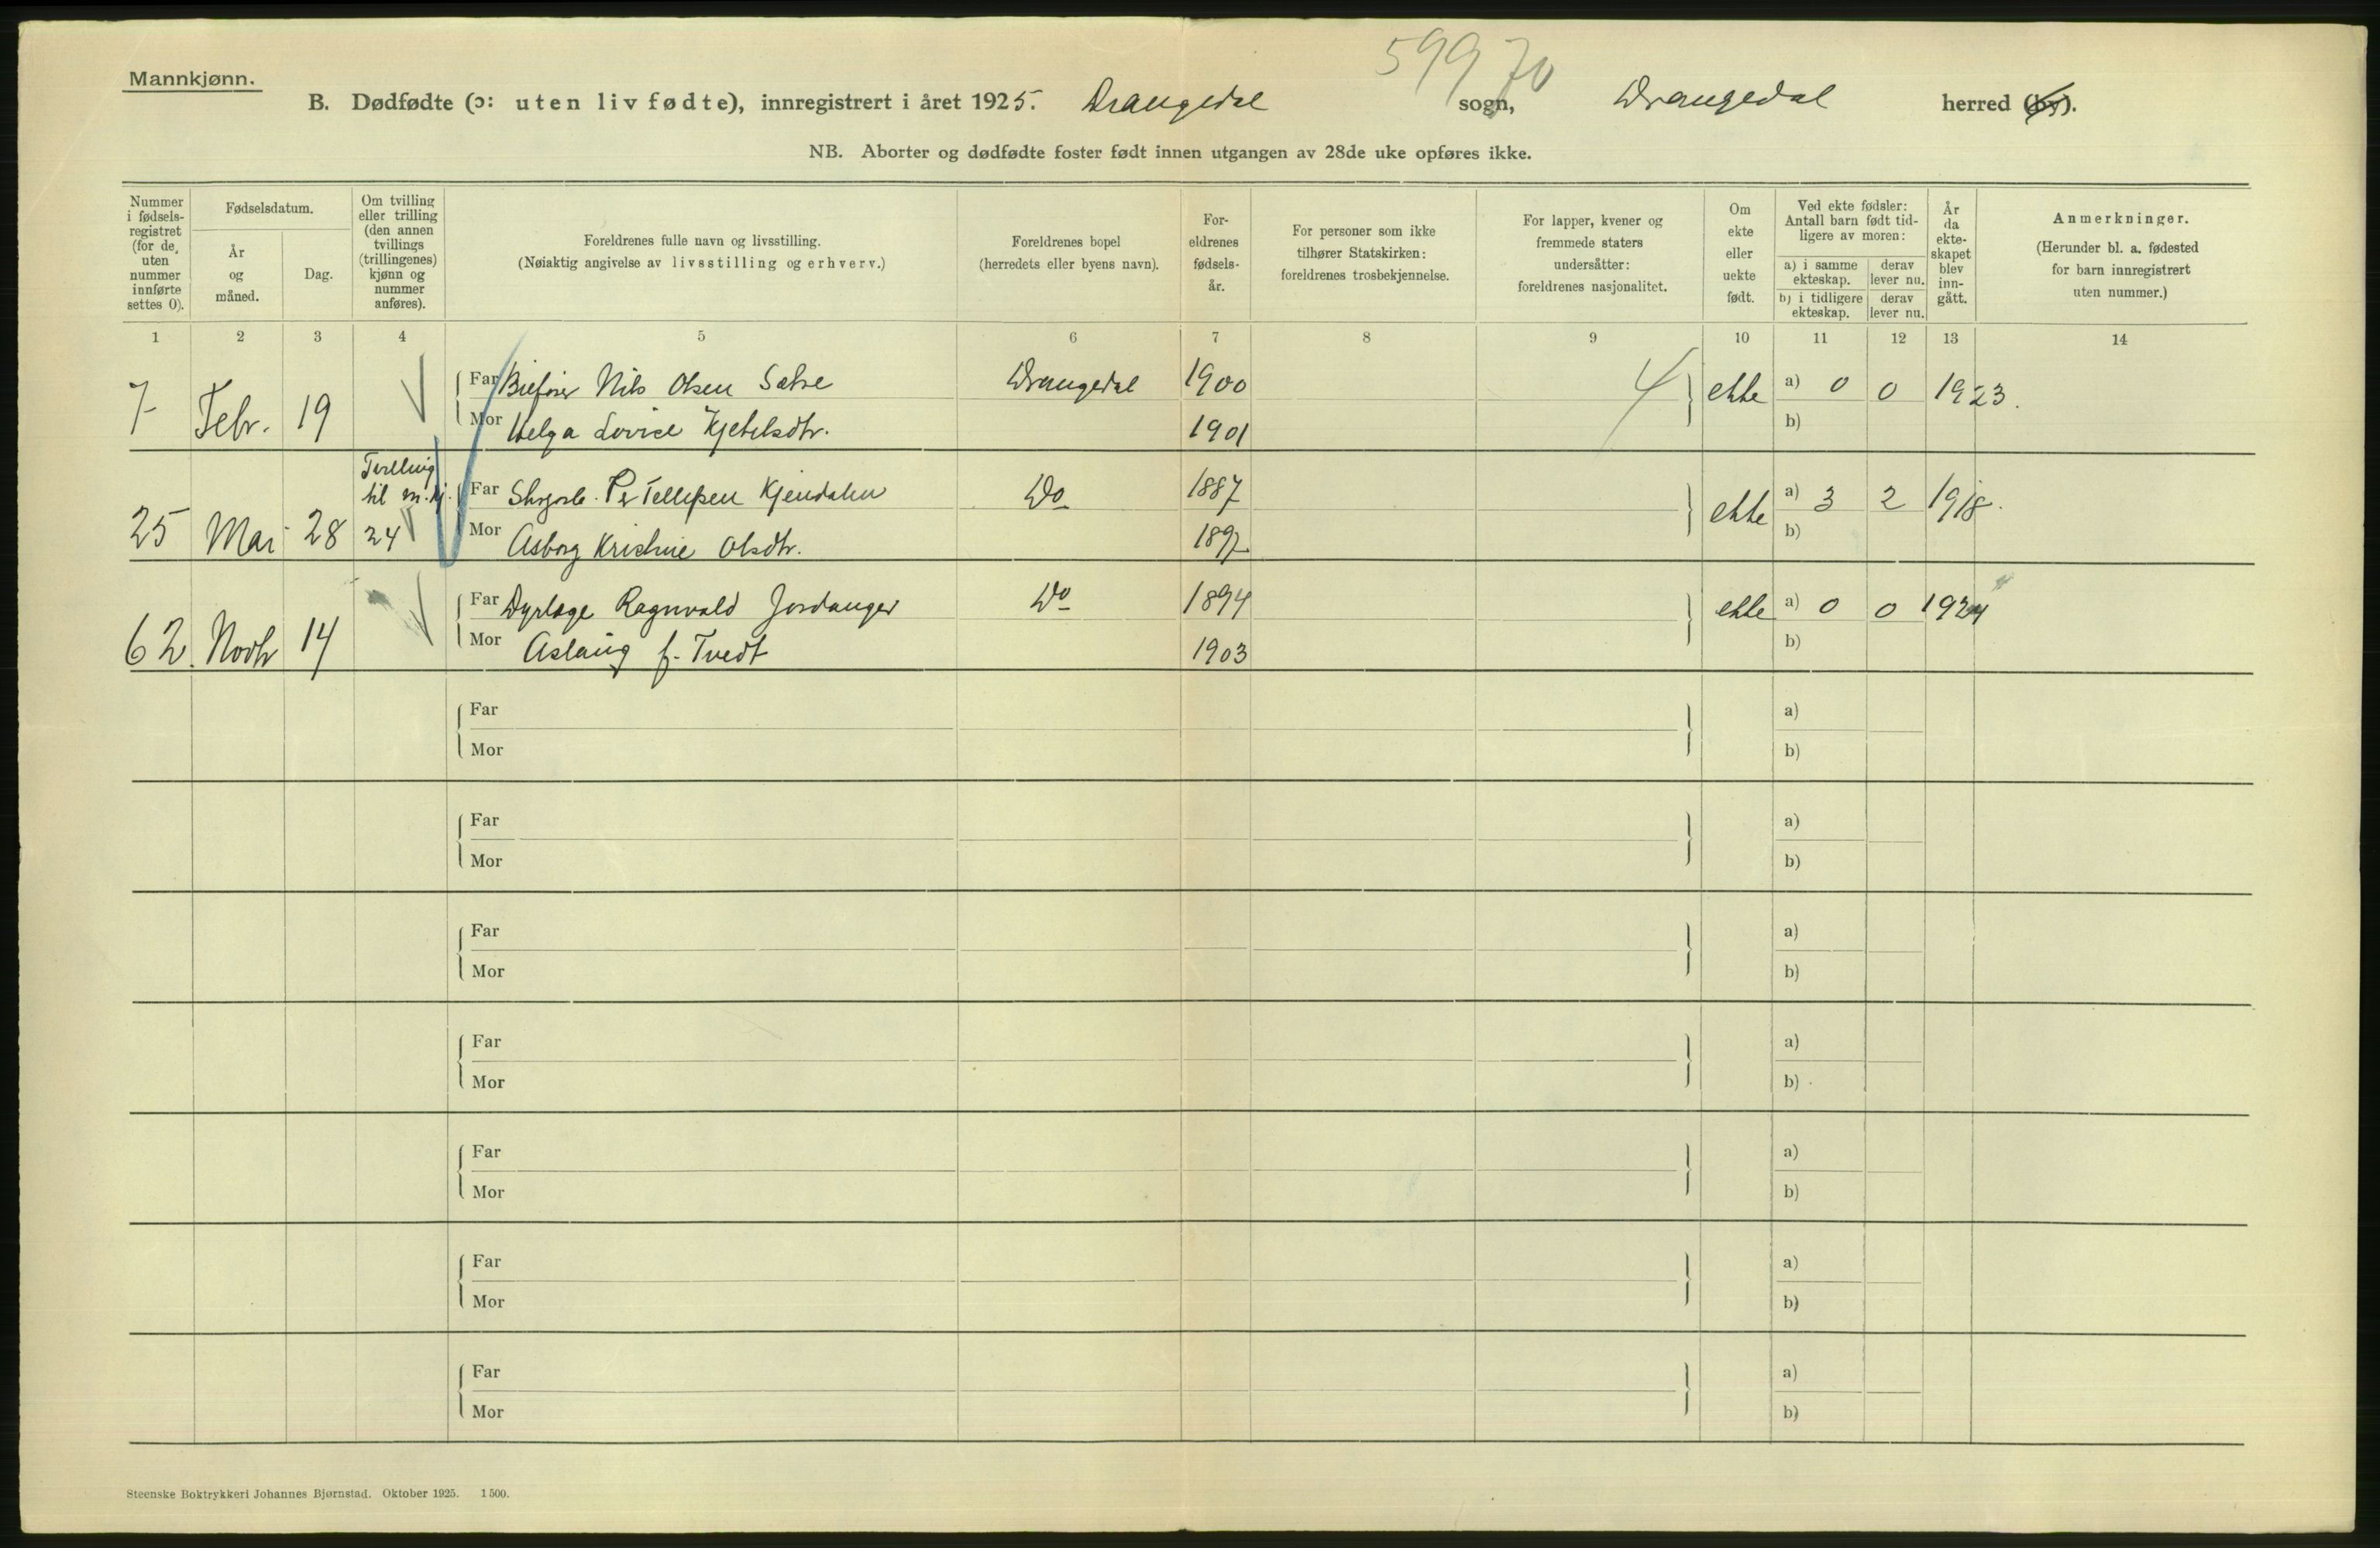 59970
Mannkjønn.
B. Dødfødte (ɔ: uten liv fødte), innregistrert i året 1925. Drangedal sogn, Drangedal herred (by).
NB. Aborter og dødfødte foster født innen utgangen av 28de uke opføres ikke.
Nummer i fødsels-registret (for de uten nummer innførte settes 0).
Fødselsdatum.
År og måned.
Dag.
Om tvilling eller trilling (den annen tvillings (trillingenes) kjønn og nummer anføres).
Foreldrenes fulle navn og livsstilling.
(Nøiaktig angivelse av livsstilling og erhverv.)
Foreldrenes bopel
(herredets eller byens navn).
For-eldrenes fødsels-år.
For personer som ikke tilhører Statskirken: foreldrenes trosbekjennelse.
For lapper, kvener og fremmede staters undersåtter: foreldrenes nasjonalitet.
Om ekte eller uekte født.
Ved ekte fødsler: Antall barn født tid-ligere av moren:
a) i samme ekteskap.
derav lever nu.
b) i tidligere ekteskap.
derav lever nu.
År da ekte-skapet blev inn-gått.
Anmerkninger.
(Herunder bl. a. fødested for barn innregistrert uten nummer.)
1 2 3 4 5 6 7 8 9 10 11 12 13 14
7 Febr. 19 Far Nils Olsen Drangedal 1900 4 ekte a) 0 0 1923.
Mor Helga Lovise Kjetilsdtr. 1901 b)
Tvilling
til m.kj.
25 Mai 28 24 Far Per Tellefsen Kjendalen Do 1887 ekte a) 3 2 1918.
Mor Asborg Kristine Olsdtr. 1897 b)
62. Novbr 14 Far Dyrlæge Ragnvald Jordanger Do 1894 ekte a) 0 0 1924
Mor Aslaug f. Tvedt 1903 b)
Far a)
Mor b)
Far a)
Mor b)
Far a)
Mor b)
Far a)
Mor b)
Far a)
Mor b)
Far a)
Mor b)
Far a)
Mor b)
Steenske Boktrykkeri Johannes Bjørnstad. Oktober 1925. 1500.